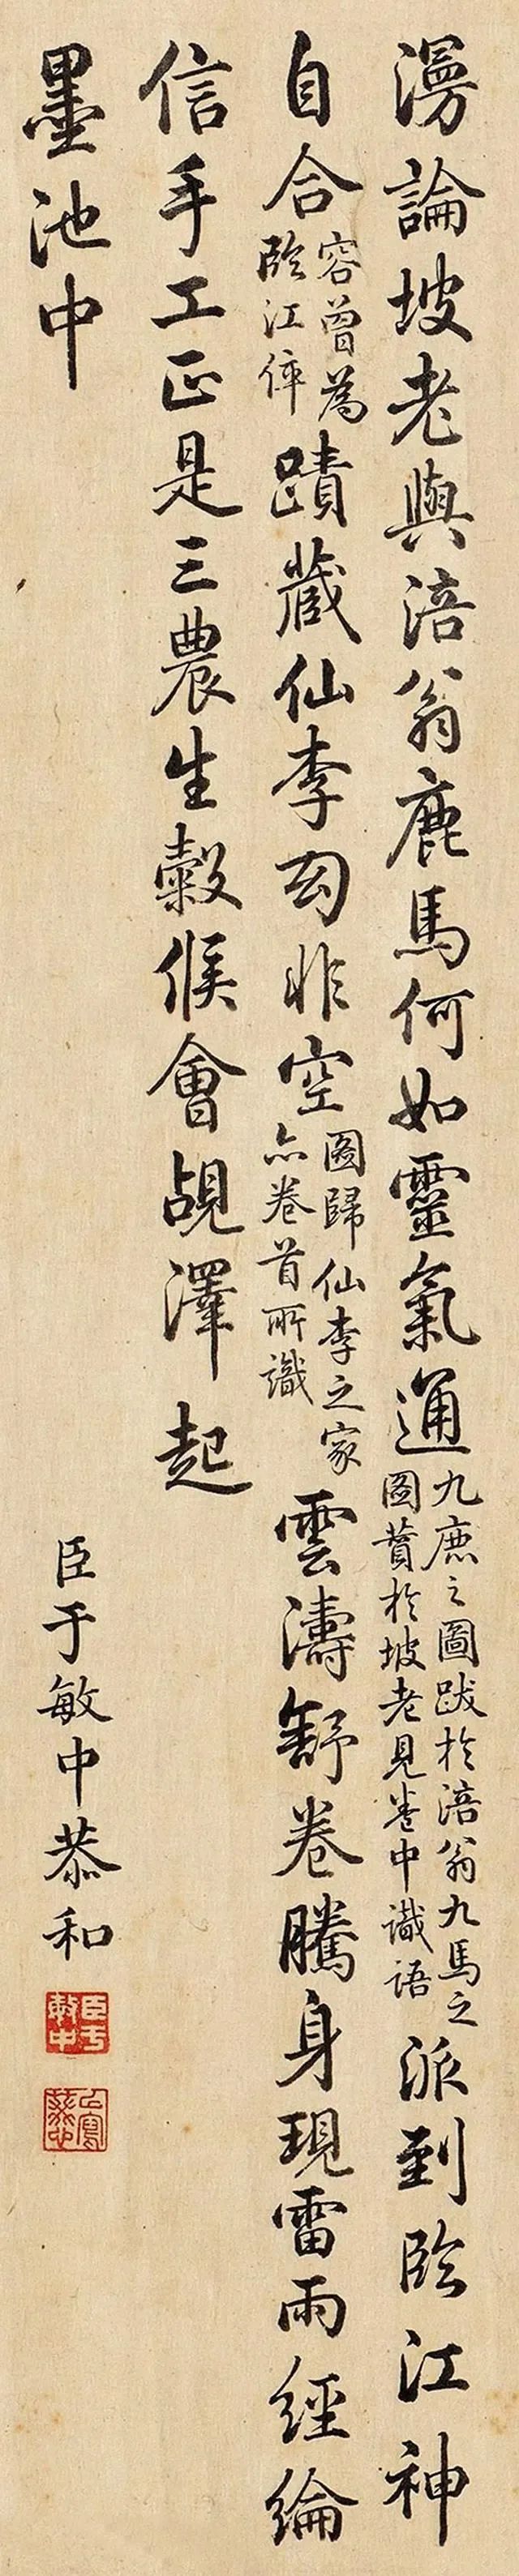 漫論坡老與涪翁鹿馬何如靈氣通九鹿之圖跋於涪翁九馬之圖贊於坡老見卷中識語派到臨江神
自合容曾為臨江倅蹟藏仙李句非空圖歸仙李之家亦卷首所識雲濤舒卷騰身現雷雨經綸
信手工正是三農生穀候會覘澤起
墨池中
臣于敏中恭和
臣于敏中